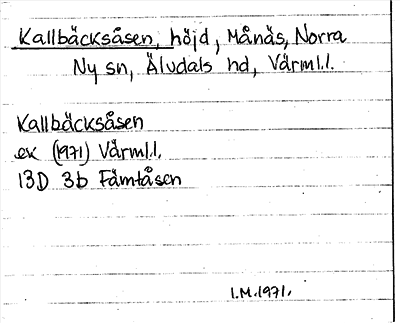 Kallbäcksåsen, höjd, Månäs, Norra
Ny sn, Älvdals hd, Värml.l.
Kallbäcksåsen
ek (1971) Värml.l.
13D 3b Fämtåsen
I.M.1971.